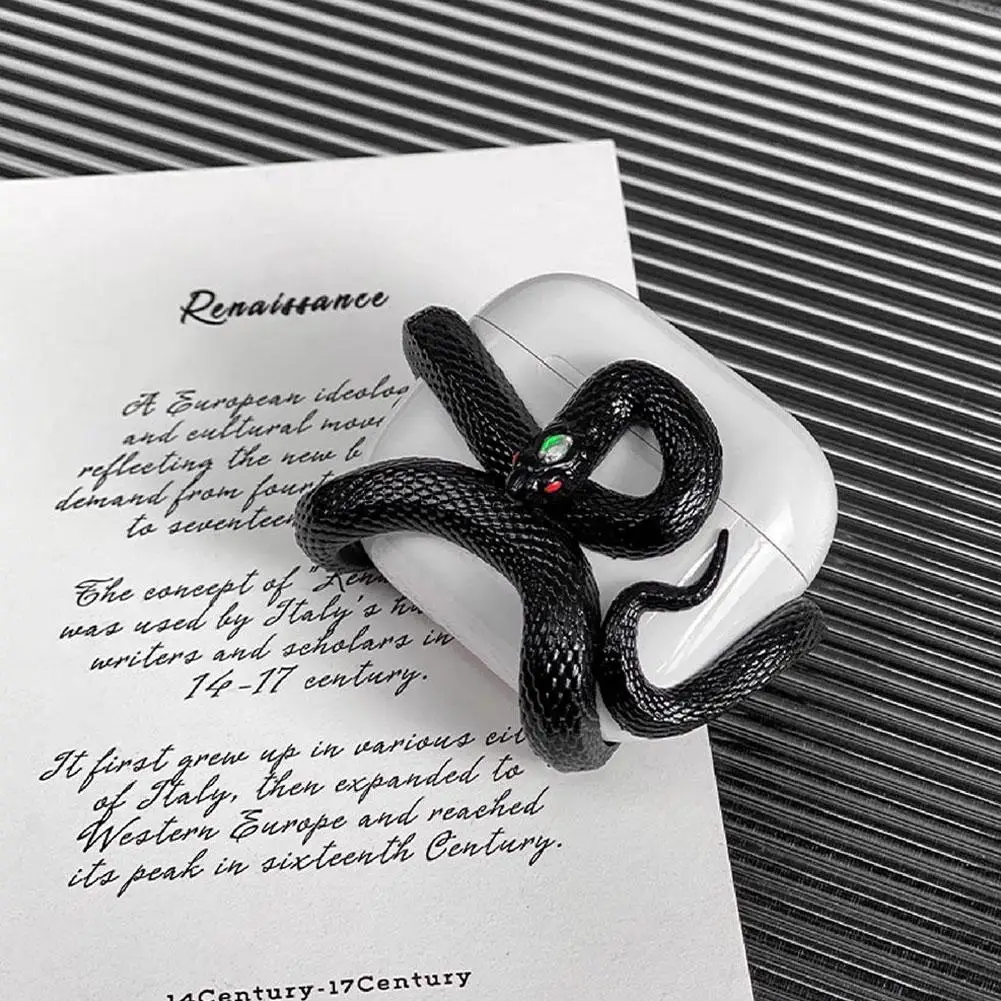 Renaissance
A European
and cultural
reflecting the new
demand from
to
The concept of
was used by Italy's
writers and scholars in
14-17 century.
It first grew up in various
of Italy, then expanded to
Western Europe and reached
its peak in sixteenth Century.
14Century-17Century